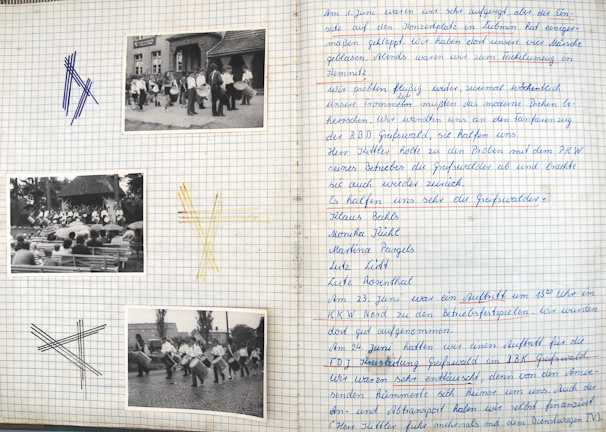 Am 1. Juni waren wir sehr aufgeregt, aber der Ein-
satz auf den Konzertplatz in Lubmin hat einiger-
maßen geklappt. Wir haben dort unsere vier Märsche
geblasen. Abends waren wir zum Fackelumzug in
Pemnitz.
Wir probten fleißig weiter, zweimal wöchentlich.
Unsere Trommeln mußten das moderne Drehen be-
herrschen. Wir wandten uns an den Fanfarenzug
der RBD Greifswald, sie halfen uns.
Herr Hittler holte zu den Proben mit dem PKW
seines Betriebes die Greifswalder ab und brachte
sie auch wieder zurück.
Es halfen uns sehr die Greifswalder:
Klaus Bahls
Monika Kühl
Martina Pargels
Lutz
Lutz Rosenthal
Am 23. Juni war ein Auftritt um 13 Uhr im
KKW Nord zu den Betriebsfestspielen. Wir wurden
dort gut aufgenommen.
Am 24. Juni hatten wir einen Auftritt für die
FDJ Kreisleitung Greifswald im Greifswald.
Wir waren sehr enttäuscht, denn von den Anwe-
senden kümmerte sich keiner um uns. Auch den
An- und Abtransport haben wir selbst finanziert
(Herr Hittler fuhr mehrmals mit dem Dienstwagen TV).